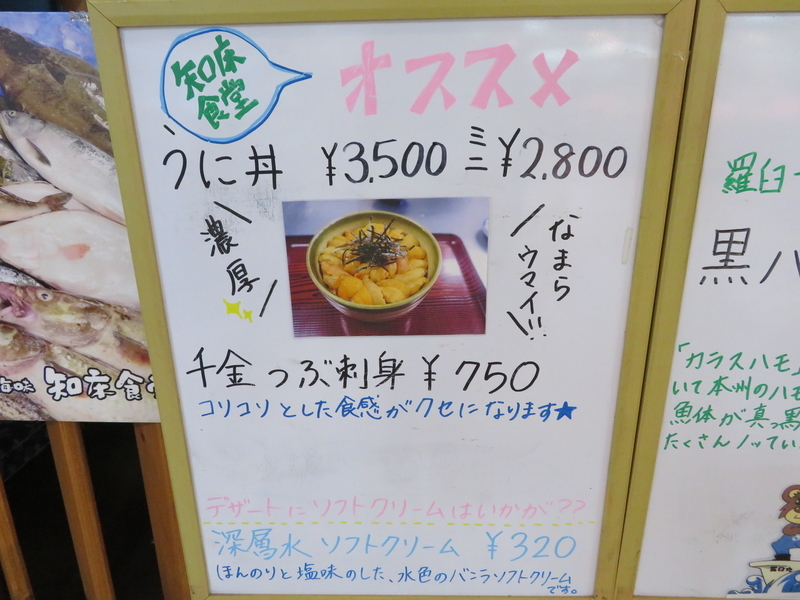 知床
食堂
オススメ
うに丼 ¥3,500 ミニ¥2,800
濃厚
なまら
ウマイ!!
千金 つぶ刺身 ¥750
コリコリとした食感がクセになります★
デザートにソフトクリームはいかが??
深層水 ソフトクリーム ¥320
ほんのりと塩味のした、水色のバニラソフトクリーム
です。
知床食
羅臼
黒ハ
「カラスハモ」
いて本州のハモ
魚体が真黒
たくさんノッてい